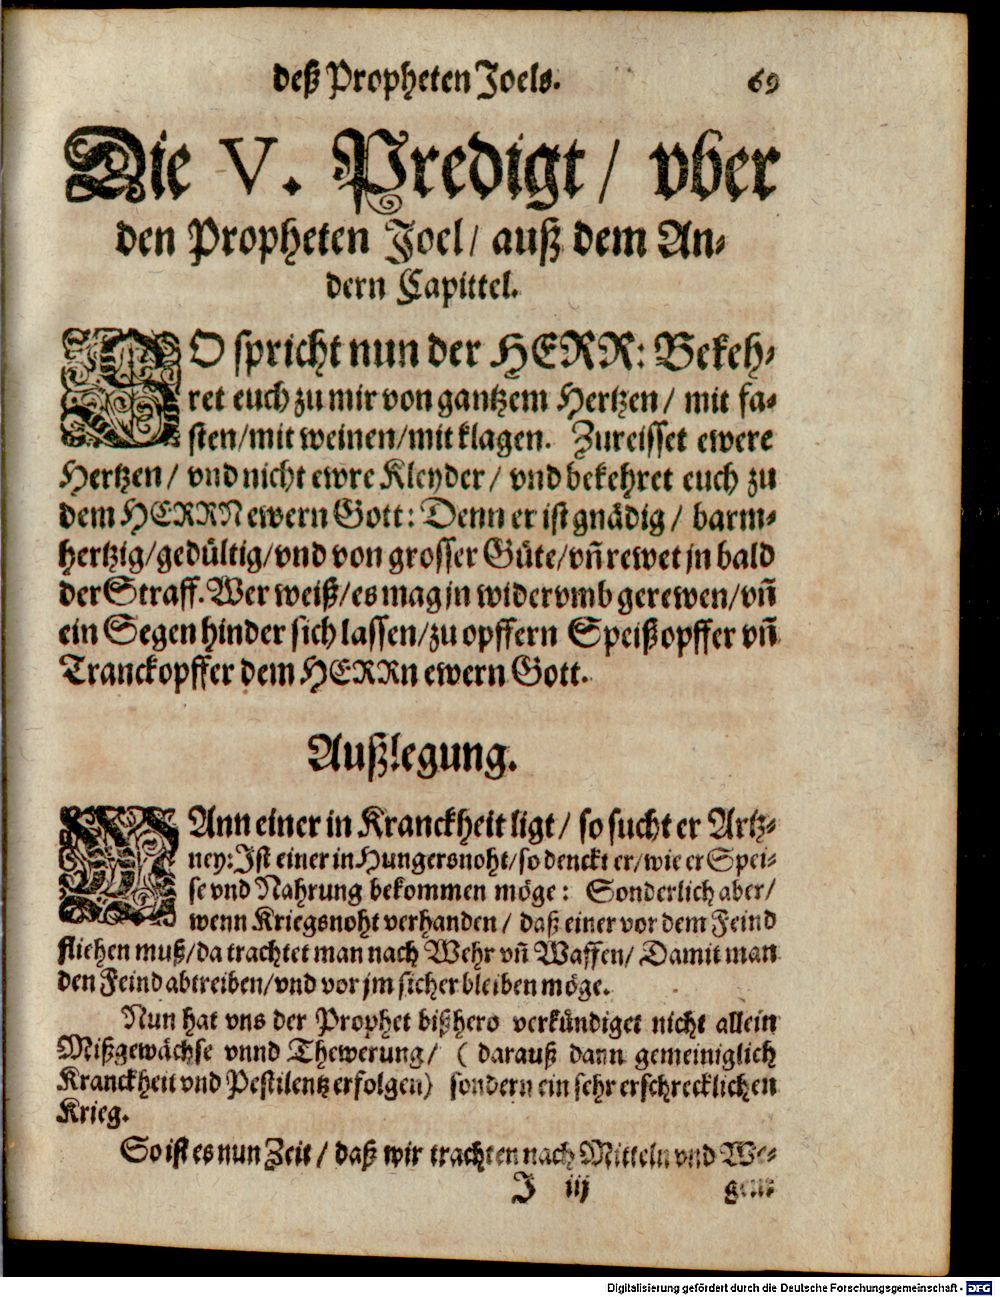 deß Propheten Joels. 69
Die V. Predigt / vber
den Propheten Joel / auß dem An-
dern Capittel.
SO spricht nun der HERR: Bekeh-
ret euch zu mir von gantzem Hertzen / mit fa-
sten / mit weinen / mit klagen. Zureisset ewere
Hertzen / vnd nicht ewre Kleyder / vnd bekehret euch zu
dem HERRN ewern Gott: Denn er ist gnädig / barm-
hertzig / gedültig / vnd von grosser Güte / vñ rewet jn bald
der Straff. Wer weiß / es mag jn widervmb gerewen / vñ
ein Segen hinder sich lassen / zu opffern Speißopffer vñ
Tranckopffer dem HERRn ewern Gott.
Außlegung.
WAnn einer in Kranckheit ligt / so sucht er Artz-
ney: Ist einer in Hungersnoht / so denckt er / wie er Spei-
se vnd Nahrung bekommen möge: Sonderlich aber /
wenn Kriegsnoht verhanden / daß einer vor dem Feind
fliehen muß / da trachtet man nach Wehr vñ Waffen / Damit man
den Feind abtreiben / vnd vor jm sicher bleiben möge.
Nun hat vns der Prophet bißhero verkündiget nicht allein
Mißgewächse vnnd Thewerung / ( darauß dann gemeiniglich
Kranckheit vnd Pestilentz erfolgen) sondern ein sehr erschrecklichen
Krieg.
So ist es nun Zeit / daß wir trachten nach Mitteln vnd We-
J iij gen-
Digitalisierung gefördert durch die Deutsche Forschungsgemeinschaft - DFG